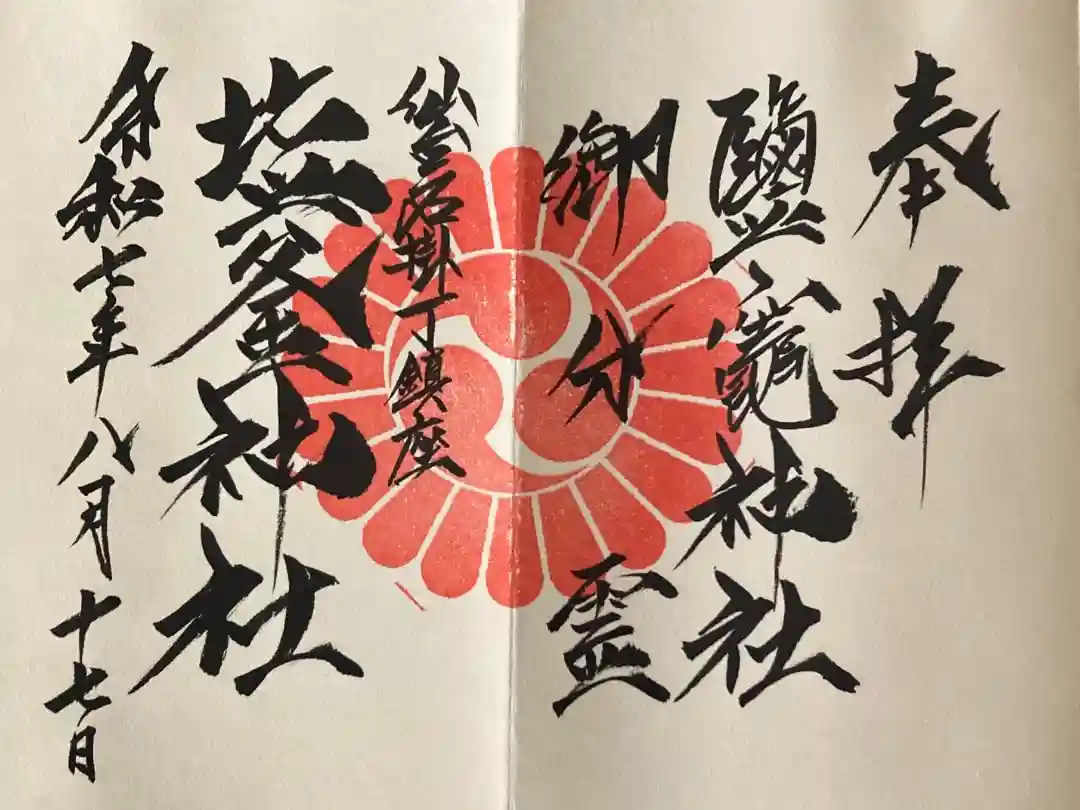 奉拝
鹽竈神社
御分霊
仙臺名掛丁鎮座
塩釜神社
令和七年八月十七日